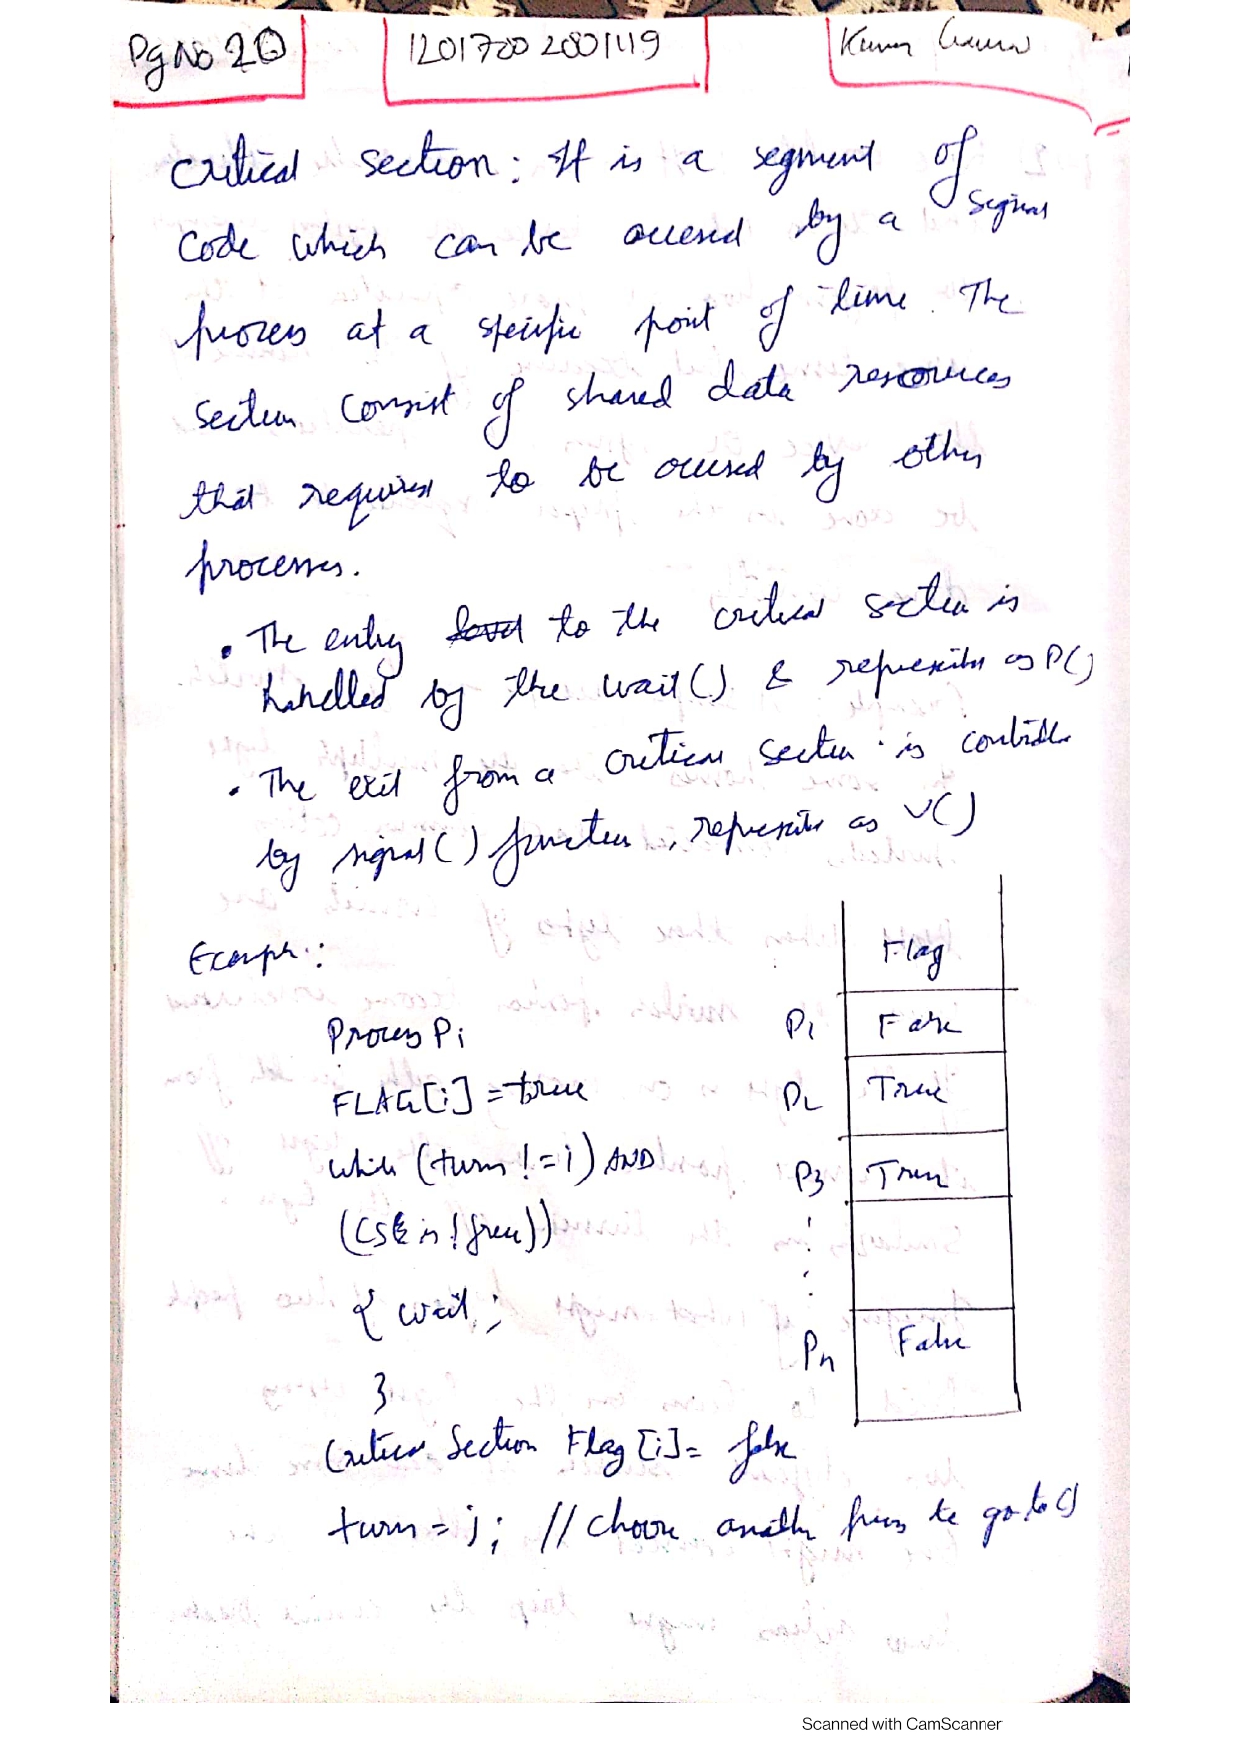 Pg No 20
12017002001119
Critical section: It is a segment of
code which can be accesed by a signal
process at a specific point of time. The
section consist of shared data resources
that requires to be accesed by other
processes.
• The entry to the critical section is
handled by the wait() & represents as P()
• The exit from a critical section is controlle
by signal() function, represents as V()
Example:
Process Pi
FLAG[i] = true
while (turn != i) AND
(CS is !free))
{ wait;
}
Critical Section Flag [i] = false
turn = j; // choose another process to go to CS
Flag
P1 False
P2 True
P3 True
Pn False
Scanned with CamScanner